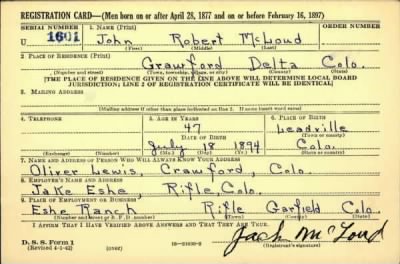 REGISTRATION CARD—(Men born on or after April 28, 1877 and on or before February 16, 1897)
SERIAL NUMBER 1. NAME (Print)
U 1601 John Robert McLoud
(First) (Middle) (Last)
2. PLACE OF RESIDENCE (Print)
Crawford Delta Colo.
(Number and street) (Town, township, village, or city) (County) (State)
[THE PLACE OF RESIDENCE GIVEN ON THE LINE ABOVE WILL DETERMINE LOCAL BOARD
JURISDICTION; LINE 2 OF REGISTRATION CERTIFICATE WILL BE IDENTICAL]
3. MAILING ADDRESS
[Mailing address if other than place indicated on line 2. If same insert word same]
4. TELEPHONE 5. AGE IN YEARS 6. PLACE OF BIRTH
47 Leadville
DATE OF BIRTH (Town or county)
July 18 1894 Colo.
(Exchange) (Number) (Mo.) (Day) (Yr.) (State or country)
7. NAME AND ADDRESS OF PERSON WHO WILL ALWAYS KNOW YOUR ADDRESS
Oliver Lewis, Crawford, Colo.
8. EMPLOYER'S NAME AND ADDRESS
Jake Eshe, Rifle, Colo.
9. PLACE OF EMPLOYMENT OR BUSINESS
Eshe Ranch Rifle Garfield Colo.
(Number and street or R. F. D. number) (Town) (County) (State)
I AFFIRM THAT I HAVE VERIFIED ABOVE ANSWERS AND THAT THEY ARE TRUE.
D. S. S. Form 1
(Revised 4-1-42) (over) Jack McLoud
(Registrant's signature)